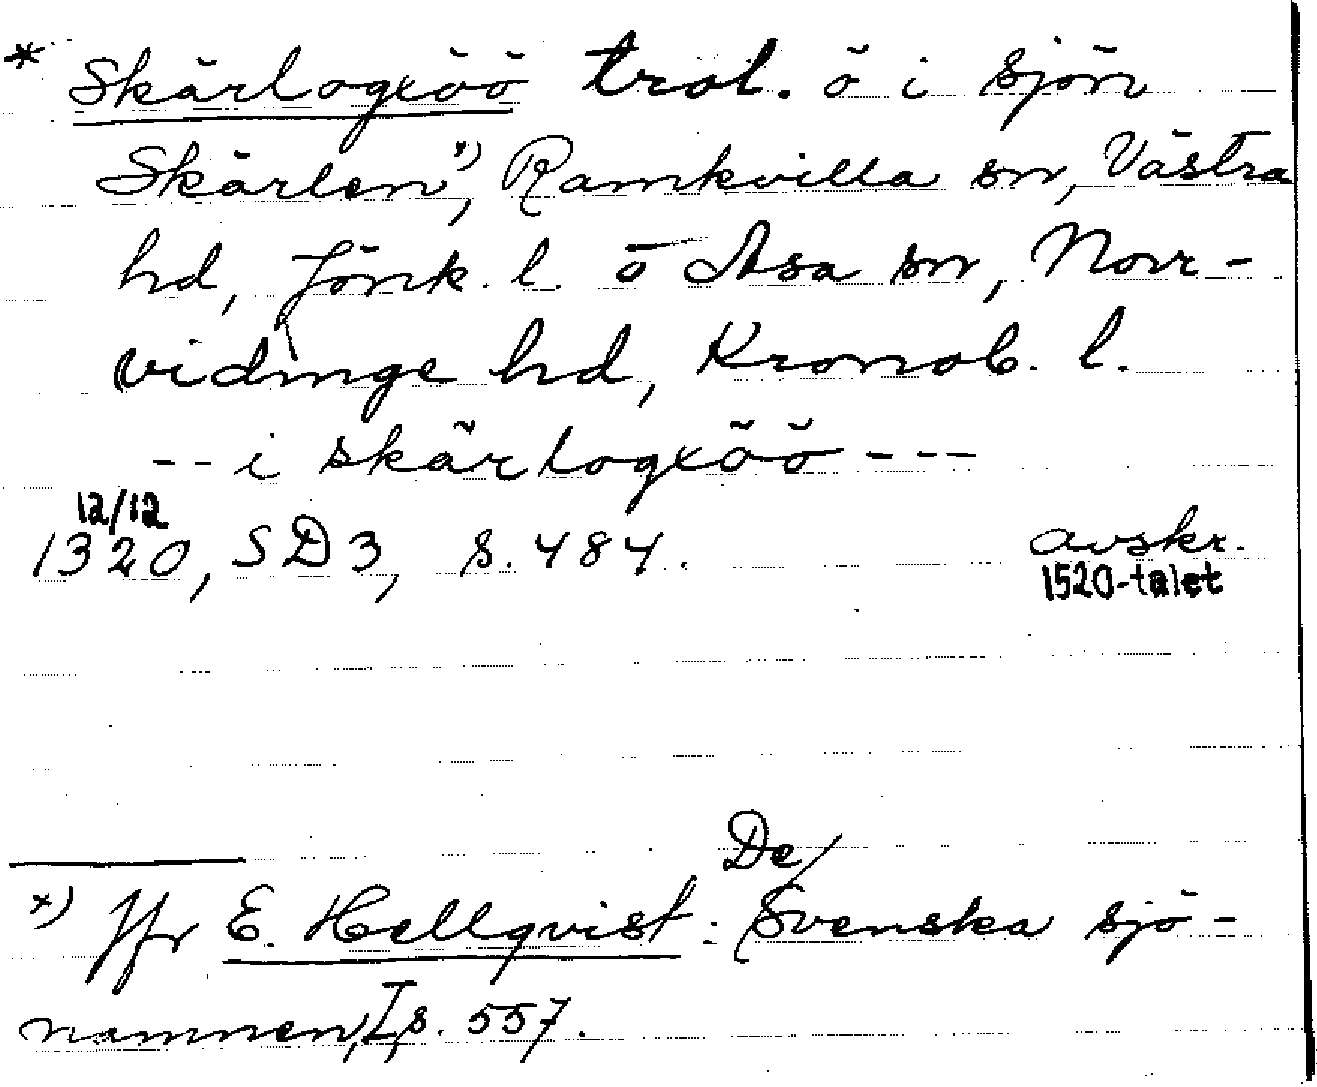 * Skärlogxöö trol. ö i sjön
Skärlen x), Ramkvilla sn, Västra
hd, Jönk. l. o Asa sn, Norr-
vidinge hd, Kronob. l.
-- i skärlogxöö ---
12/12
1320, SD 3, s. 484. avskr.
1520-talet
x) Jfr E. Hellqvist: De Svenska sjö-
namnen, I, s. 557.